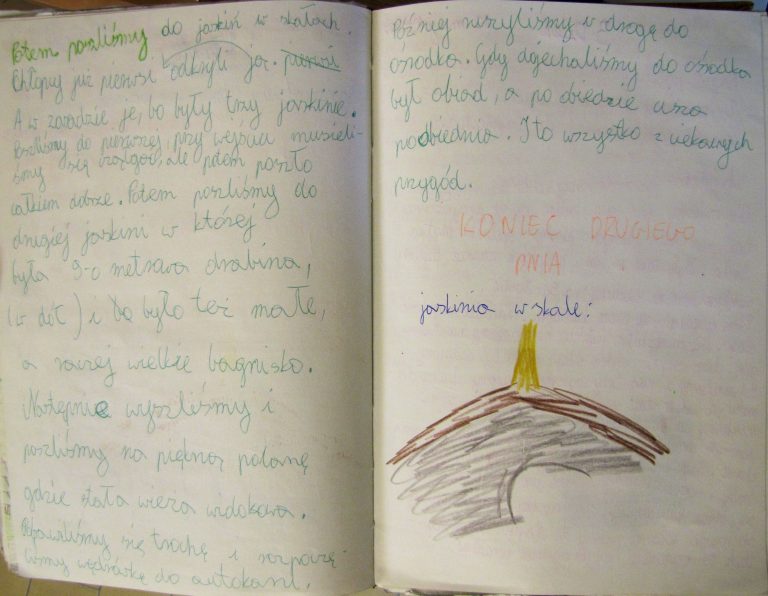 Potem poszliśmy do jaskiń w skałach.
Chłopcy już pierwsi odkryli ją. pierwsi
A w zasadzie je, bo były trzy jaskinie.
Poszliśmy do pierwszej, przy wejściu musieli-
śmy się, ale potem poszło
całkiem dobrze. Potem poszliśmy do
drugiej jaskini w której
była 9-o metrowa drabina,
(w dół) i było też małe,
a raczej wielkie bagnisko.
Następnie wyszliśmy i
poszliśmy na piękną polanę
gdzie stała wieża widokowa.
Pobawiliśmy się trochę i rozpoczę-
liśmy wędrówkę do autokaru.
Później ruszyliśmy w drogę do
ośrodka. Gdy dojechaliśmy do ośrodka
był obiad, a po obiedzie cisza
poobiednia. I to wszystko z ciekawych
przygód.
KONIEC DRUGIEGO
DNIA.
jaskinia w skale: